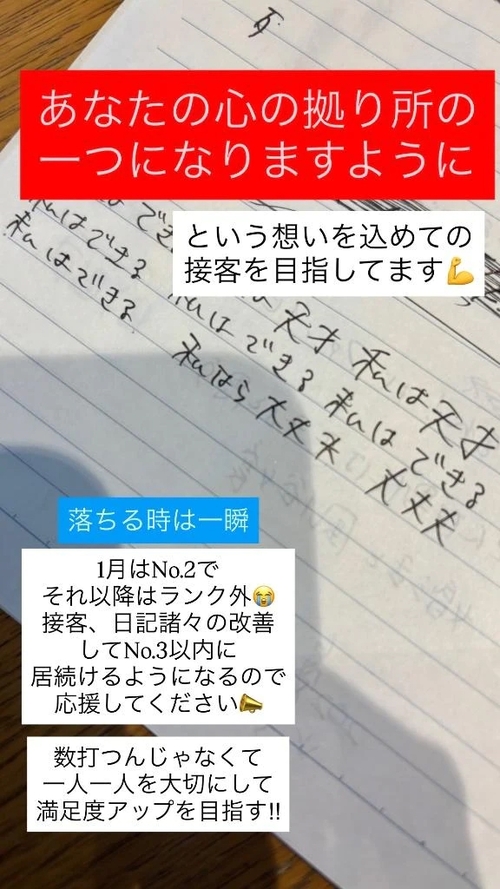 あなたの心の拠り所の
一つになりますように
という想いを込めての
接客を目指してます💪
はできる
私はできる 私は天才 私は天才
私はできる 私はできる 私はできる
私なら大丈夫 大丈夫
落ちる時は一瞬
1月はNo.2で
それ以降はランク外😭
接客、日記諸々の改善
してNo.3以内に
居続けるようになるので
応援してください📣
数打つんじゃなくて
一人一人を大切にして
満足度アップを目指す!!